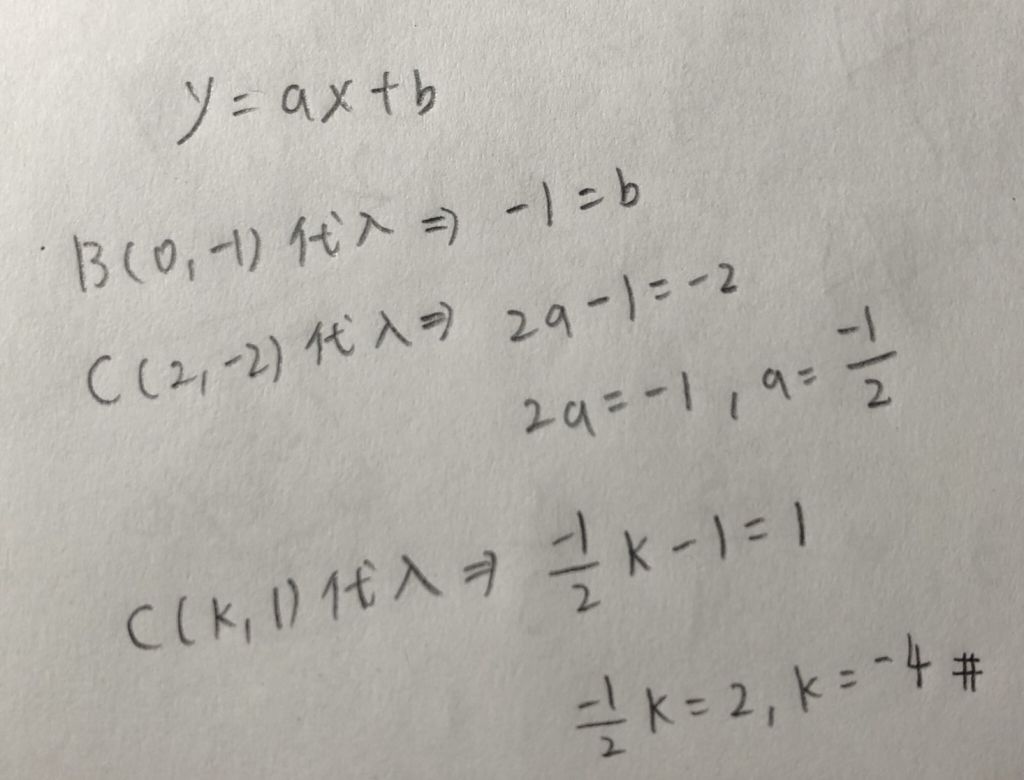 y = ax + b
B(0, -1) 代入 ⇒ -1 = b
C(2, -2) 代入 ⇒ 2a - 1 = -2
2a = -1 , a = -1/2
C(k, 1) 代入 ⇒ -1/2 k - 1 = 1
-1/2 k = 2, k = -4 #